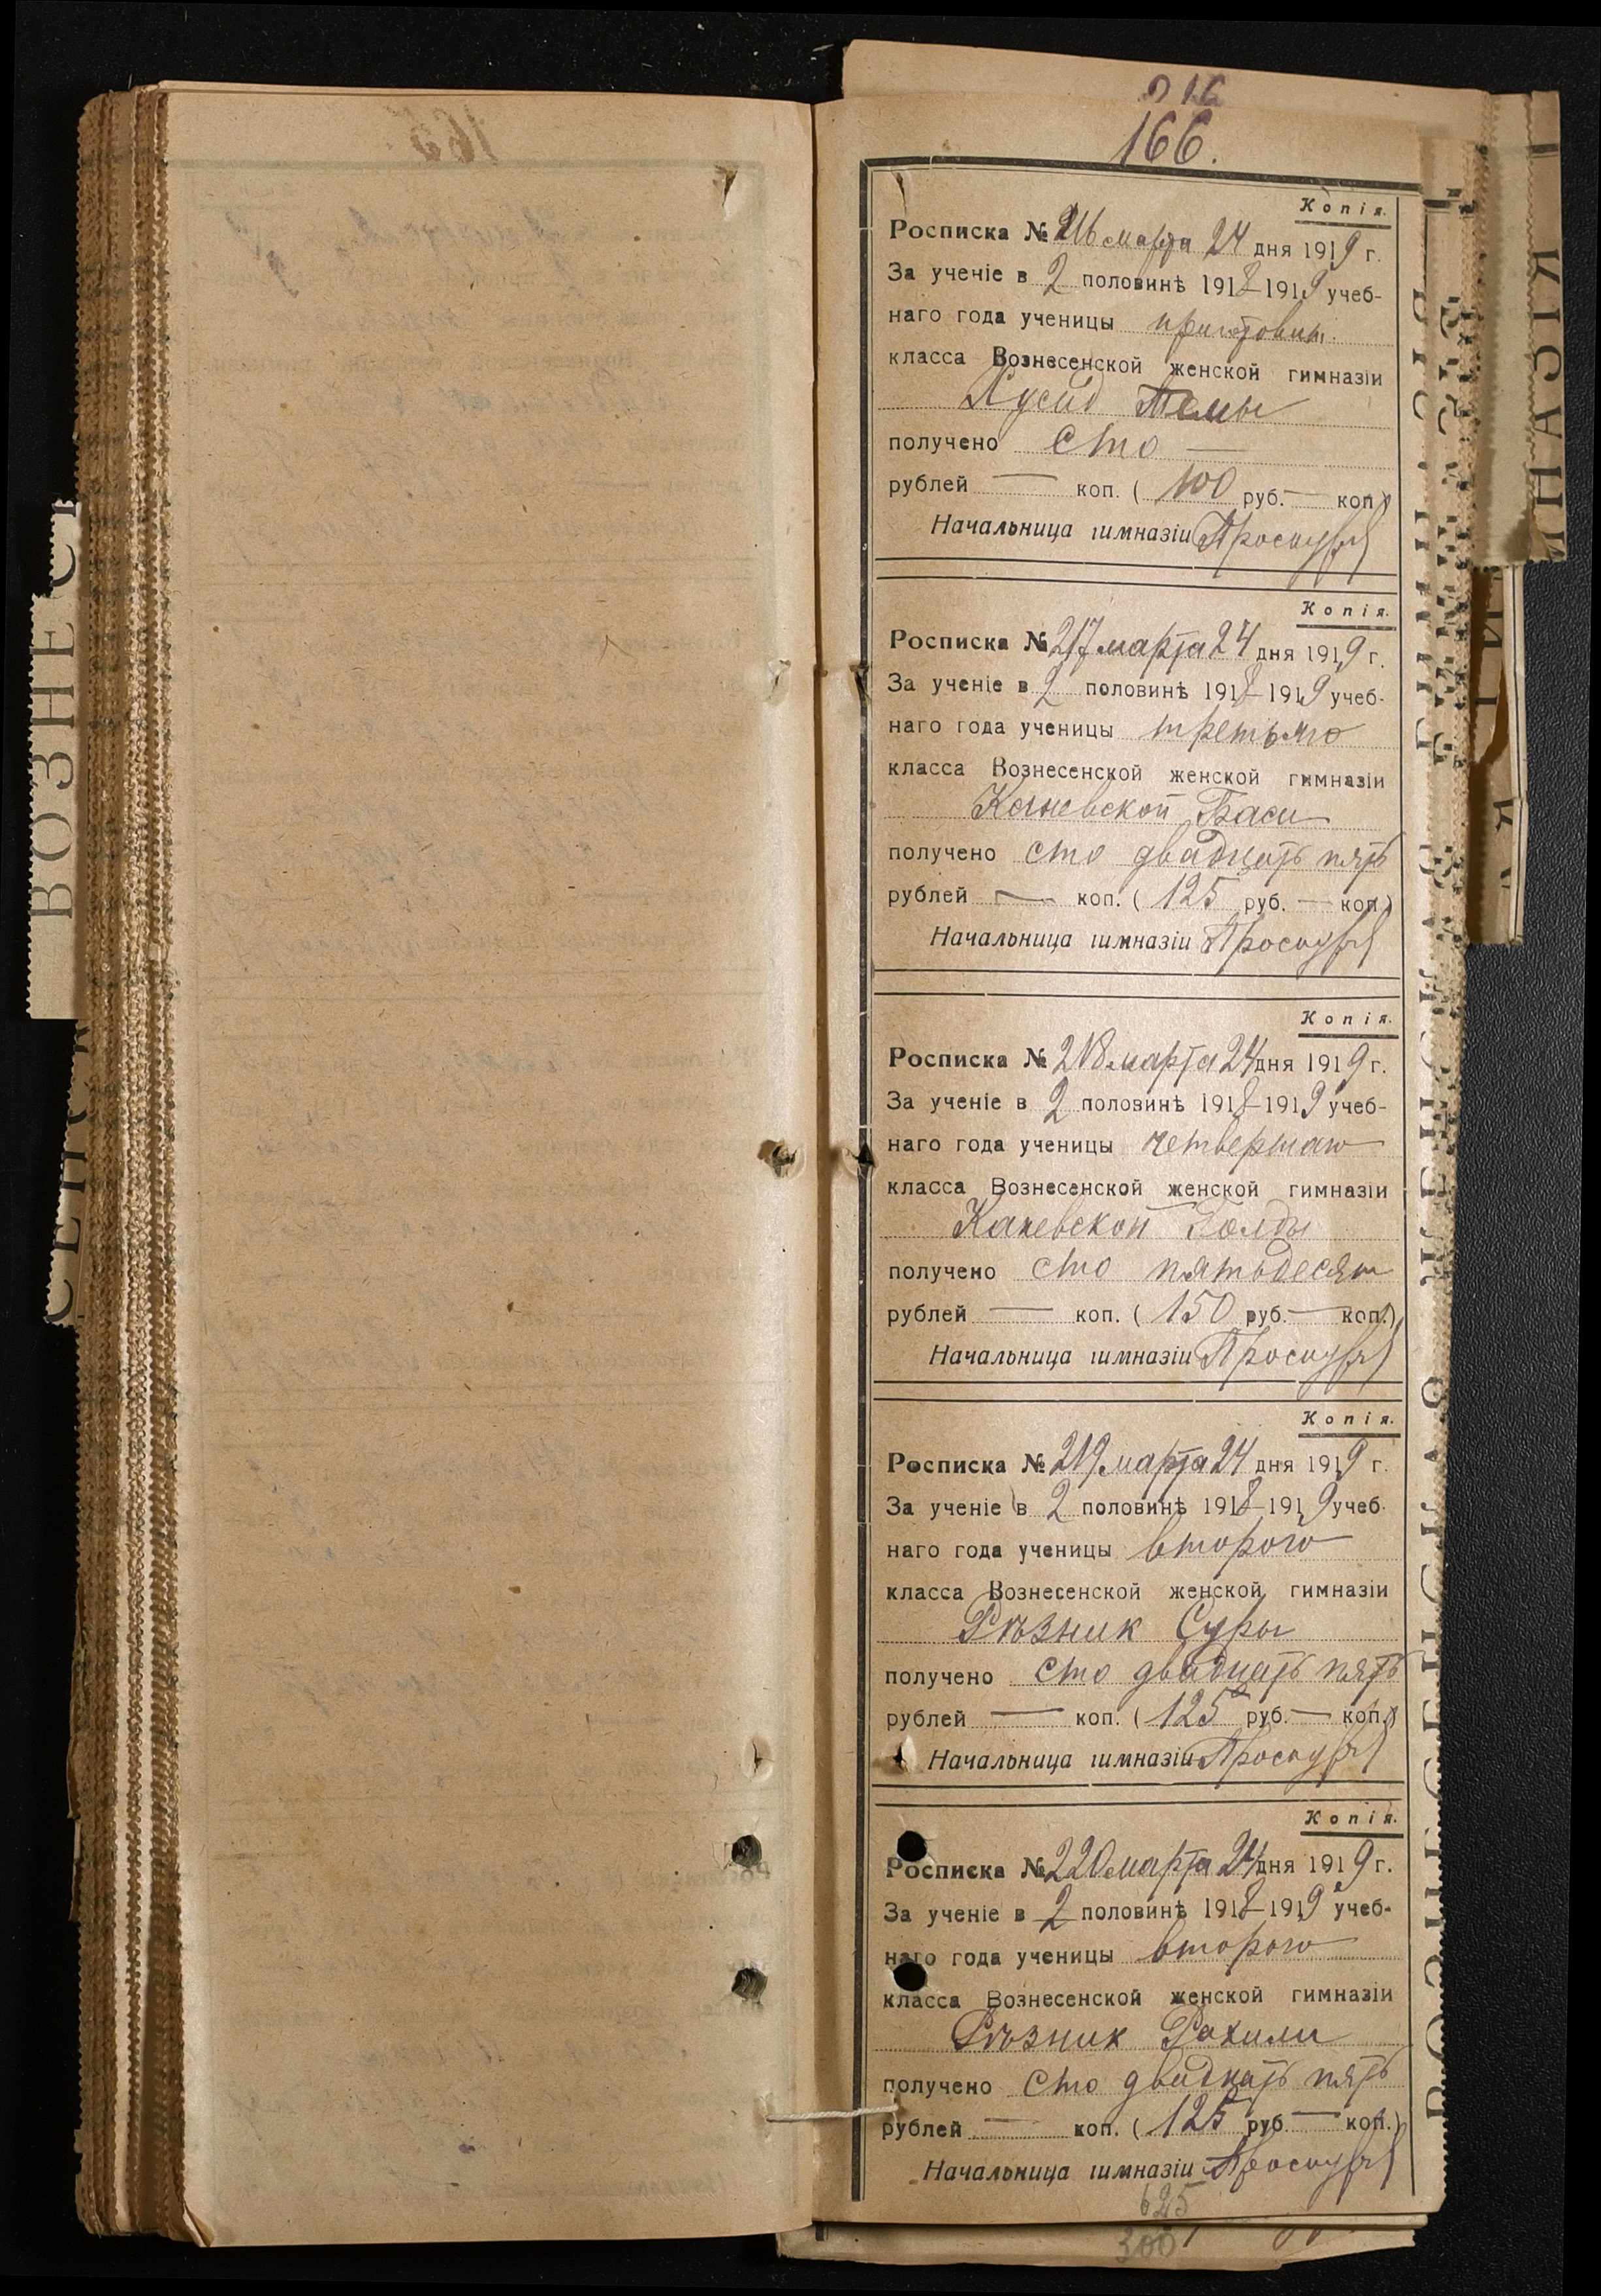 166.
Копія.
Росписка № 216 марта 24 дня 1919 г.
За ученіе в 2 половинѣ 1918–1919 учеб-
наго года ученицы приготовит.
класса Вознесенской женской гимназіи
Хусид Темы
получено сто —
рублей — коп. (100 руб. — коп.)
Начальница гимназіи
Копія.
Росписка № 217 марта 24 дня 1919 г.
За ученіе в 2 половинѣ 1918–1919 учеб-
наго года ученицы третьяго
класса Вознесенской женской гимназіи
Каневской Баси
получено сто двадцать пять
рублей — коп. (125 руб. — коп.)
Начальница гимназіи
Копія.
Росписка № 218 марта 24 дня 1919 г.
За ученіе в 2 половинѣ 1918–1919 учеб-
наго года ученицы четвертаго
класса Вознесенской женской гимназіи
Каневской Голды
получено сто пятьдесят
рублей — коп. (150 руб. — коп.)
Начальница гимназіи
Копія.
Росписка № 219 марта 24 дня 1919 г.
За ученіе в 2 половинѣ 1918–1919 учеб-
наго года ученицы второго
класса Вознесенской женской гимназіи
Рѣзник Суры
получено сто двадцать пять
рублей — коп. (125 руб. — коп.)
Начальница гимназіи
Копія.
Росписка № 220 марта 24 дня 1919 г.
За ученіе в 2 половинѣ 1918–1919 учеб-
наго года ученицы второго
класса Вознесенской женской гимназіи
Рѣзник Рахили
получено сто двадцать пять
рублей — коп. (125 руб. — коп.)
Начальница гимназіи
625
300
ВОЗНЕС